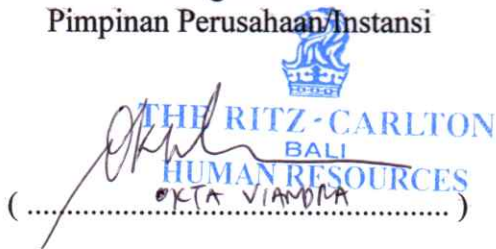 Pimpinan Perusahaan/Instansi
THE RITZ-CARLTON
BALI
HUMAN RESOURCES
OKTA VIANDRA
( ........................................ )